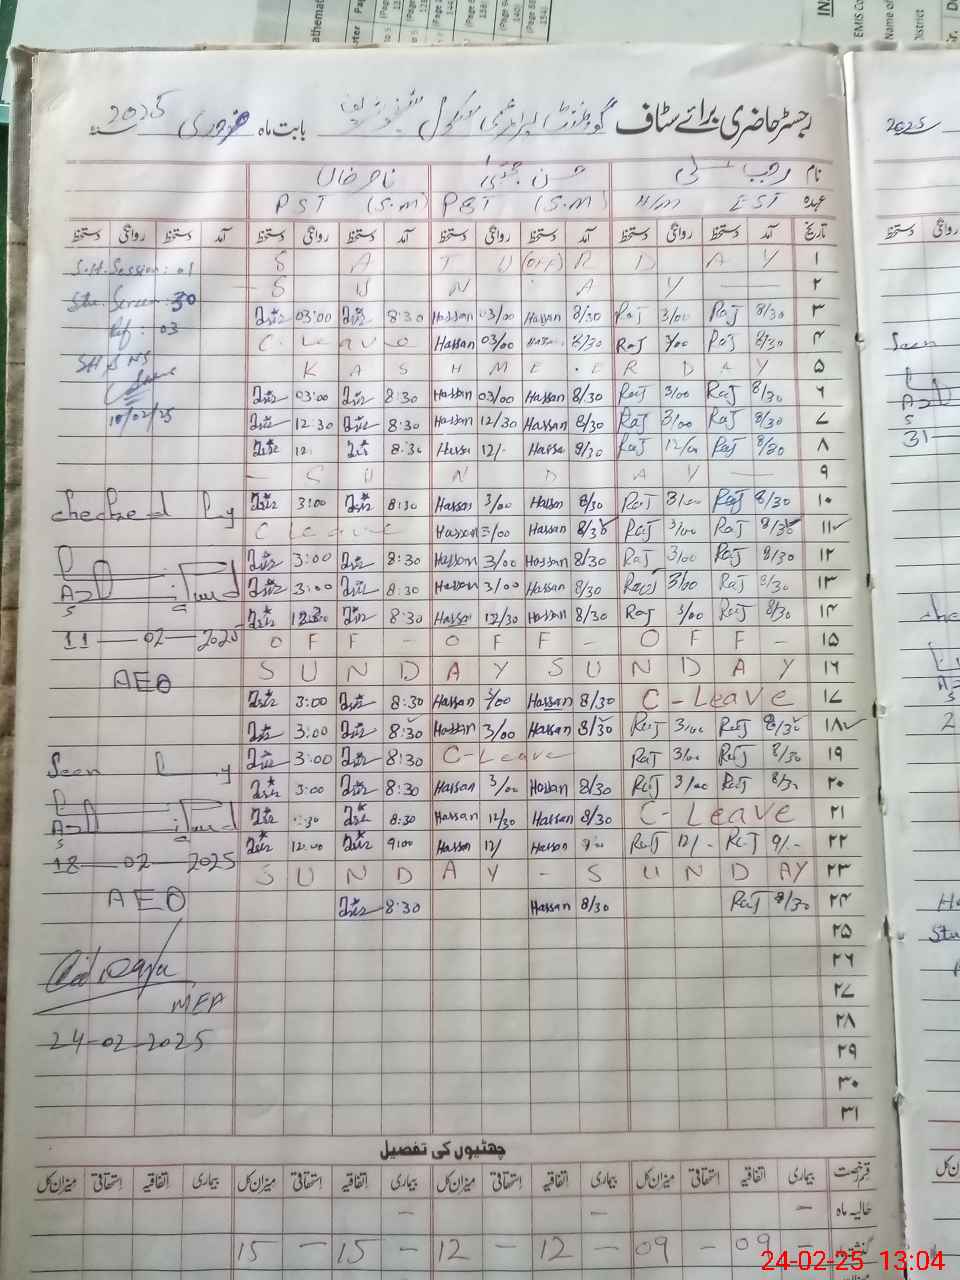 رجسٹر حاضری برائے سٹاف گورنمنٹ پرائمری سکول بابت ماہ فروری سنہ 2025
نام رجب علی حسن مجتبیٰ ناصر خان
عہدہ H/M EST PST (S.M) PST (S.M)
تاریخ آمد دستخط روانگی دستخط آمد دستخط روانگی دستخط آمد دستخط روانگی دستخط آمد دستخط روانگی دستخط
۱ S A T U (OFF) R D A Y
۲ S U N D A Y
۳ 03:00 8:30 Hassan 03/00 Hassan 8/30 Raj 3/00 Raj 8/30
۴ C. Leave Hassan 03/00 Hassan 8/30 Raj 3/00 Raj 8/30
۵ K A S H M E E R D A Y
۶ 03:00 8:30 Hassan 03/00 Hassan 8/30 Raj 3/00 Raj 8/30
۷ 12:30 8:30 Hassan 12/30 Hassan 8/30 Raj 3/00 Raj 8/30
۸ 8:30 12/- Raj Raj 8/30
۹ S U N D A Y
۱۰ 3:00 8:30 Hassan 3/00 Hassan 8/30 Raj 3/00 Raj 8/30
۱۱ C Leave Hassan 3/00 Hassan 8/30 Raj 3/00 Raj 8/30
۱۲ 3:00 8:30 Hassan 3/00 Hassan 8/30 Raj 3/00 Raj 8/30
۱۳ 3:00 8:30 Hassan 3/00 Hassan 8/30 Raj 3/00 Raj 8/30
۱۴ 8:30 Hassan 12/30 Hassan 8/30 Raj 3/00 Raj 8/30
۱۵ O F F - O F F - O F F -
۱۶ S U N D A Y S U N D A Y
۱۷ 3:00 8:30 Hassan 3/00 Hassan 8/30 C-Leave
۱۸ 3:00 8:30 Hassan 3/00 Hassan 8/30 Raj 3/00 Raj 8/30
۱۹ 3:00 8:30 C-Leave Raj 3/00 Raj 8/30
۲۰ 3:00 8:30 Hassan 3/00 Hassan 8/30 Raj 3/00 Raj 8/30
۲۱ 8:30 Hassan 12/30 Hassan 8/30 C-Leave
۲۲ 12:00 9:00 Hassan 12/ Hassan Raj 12/- Raj 9/-
۲۳ S U N D A Y - S U N D A Y
۲۴ 8:30 Hassan 8/30 Raj 8/30
۲۵
۲۶
۲۷
۲۸
۲۹
۳۰
۳۱
S.H. Session: 01
Stu. Screen: 30
Ref: 03
SH & NS
10/02/25
checked by
11-02-2025
AEO
Seen by
18-02-2025
AEO
MEA
24-02-2025
چھٹیوں کی تفصیل
قسم رخصت بیماری اتفاقیہ استحقاقی میزان کل بیماری اتفاقیہ استحقاقی میزان کل بیماری اتفاقیہ استحقاقی میزان کل بیماری اتفاقیہ استحقاقی میزان کل
حالیہ ماہ - - -
- 09 - 09 - 12 - 12 - 15 - 15
2025
Seen
31
EMIS
Name of
District
24-02-25 13:04